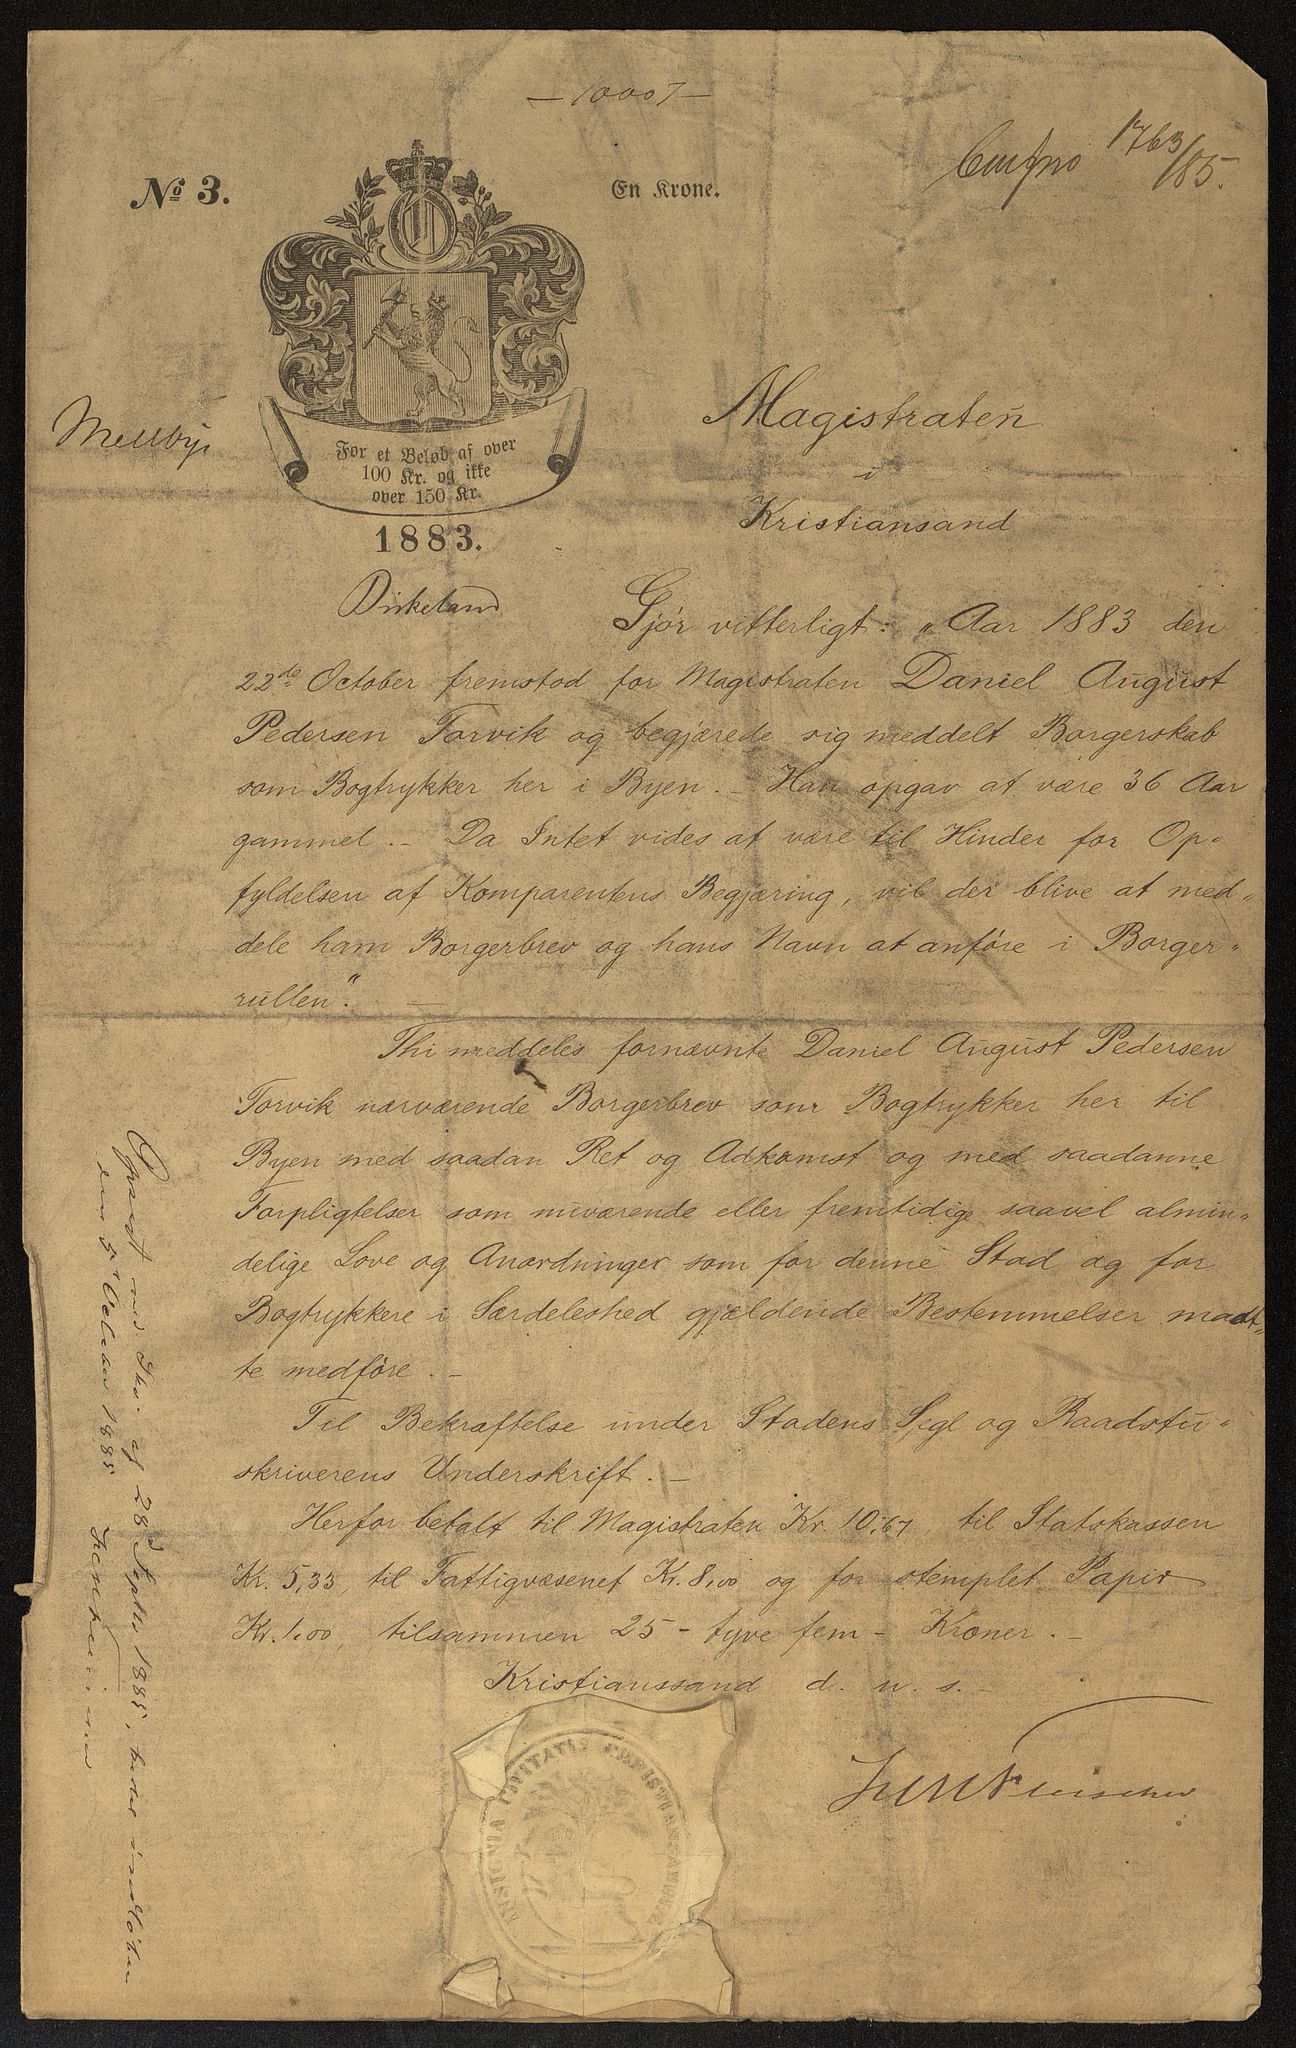 — 10007 —
1763/85.
No 3.
En Krone.
Mellbye
For et Beløb af over
100 Kr. og ikke
over 150 Kr.
1883.
Magistraten
i
Kristiansand
Birkeland
Gjør vitterligt: „Aar 1883 den
22de October fremstod for Magistraten Daniel August
Pedersen Torvik og begjærede sig meddelt Borgerskab
som Bogtrykker her i Byen. – Han opgav at være 36 Aar
gammel. – Da Intet vides at være til Hinder for Op-
fyldelsen af Komparentens Begjæring, vil der blive at med-
dele ham Borgerbrev og hans Navn at anføre i Borger-
rullen“. —
Thi meddeles fornævnte Daniel August Pedersen
Torvik nærværende Borgerbrev som Bogtrykker her til
Byen med saadan Ret og Adkomst og med saadanne
Forpligtelser som nuværende eller fremtidige saavel almin-
delige Love og Anordninger som for denne Stad og for
Bogtrykkere i Særdeleshed gjældende Bestemmelser maat-
te medføre. –
Til Bekræftelse under Stadens Segl og Raadstu-
skriverens Underskrift. –
Herfor betalt til Magistraten Kr. 10,67, til Statskassen
Kr. 5,33, til Fattigvæsenet Kr. 8,00 og for stemplet Papir
Kr. 1,00, tilsammen 25 – tyve fem – Kroner. –
Kristianssand d. u. s. –
INSIGNIA CIVITATIS CHRISTIANSANDIÆ
Opsagt ved Skr. af 28d Septbr 1885,
den 5 1885